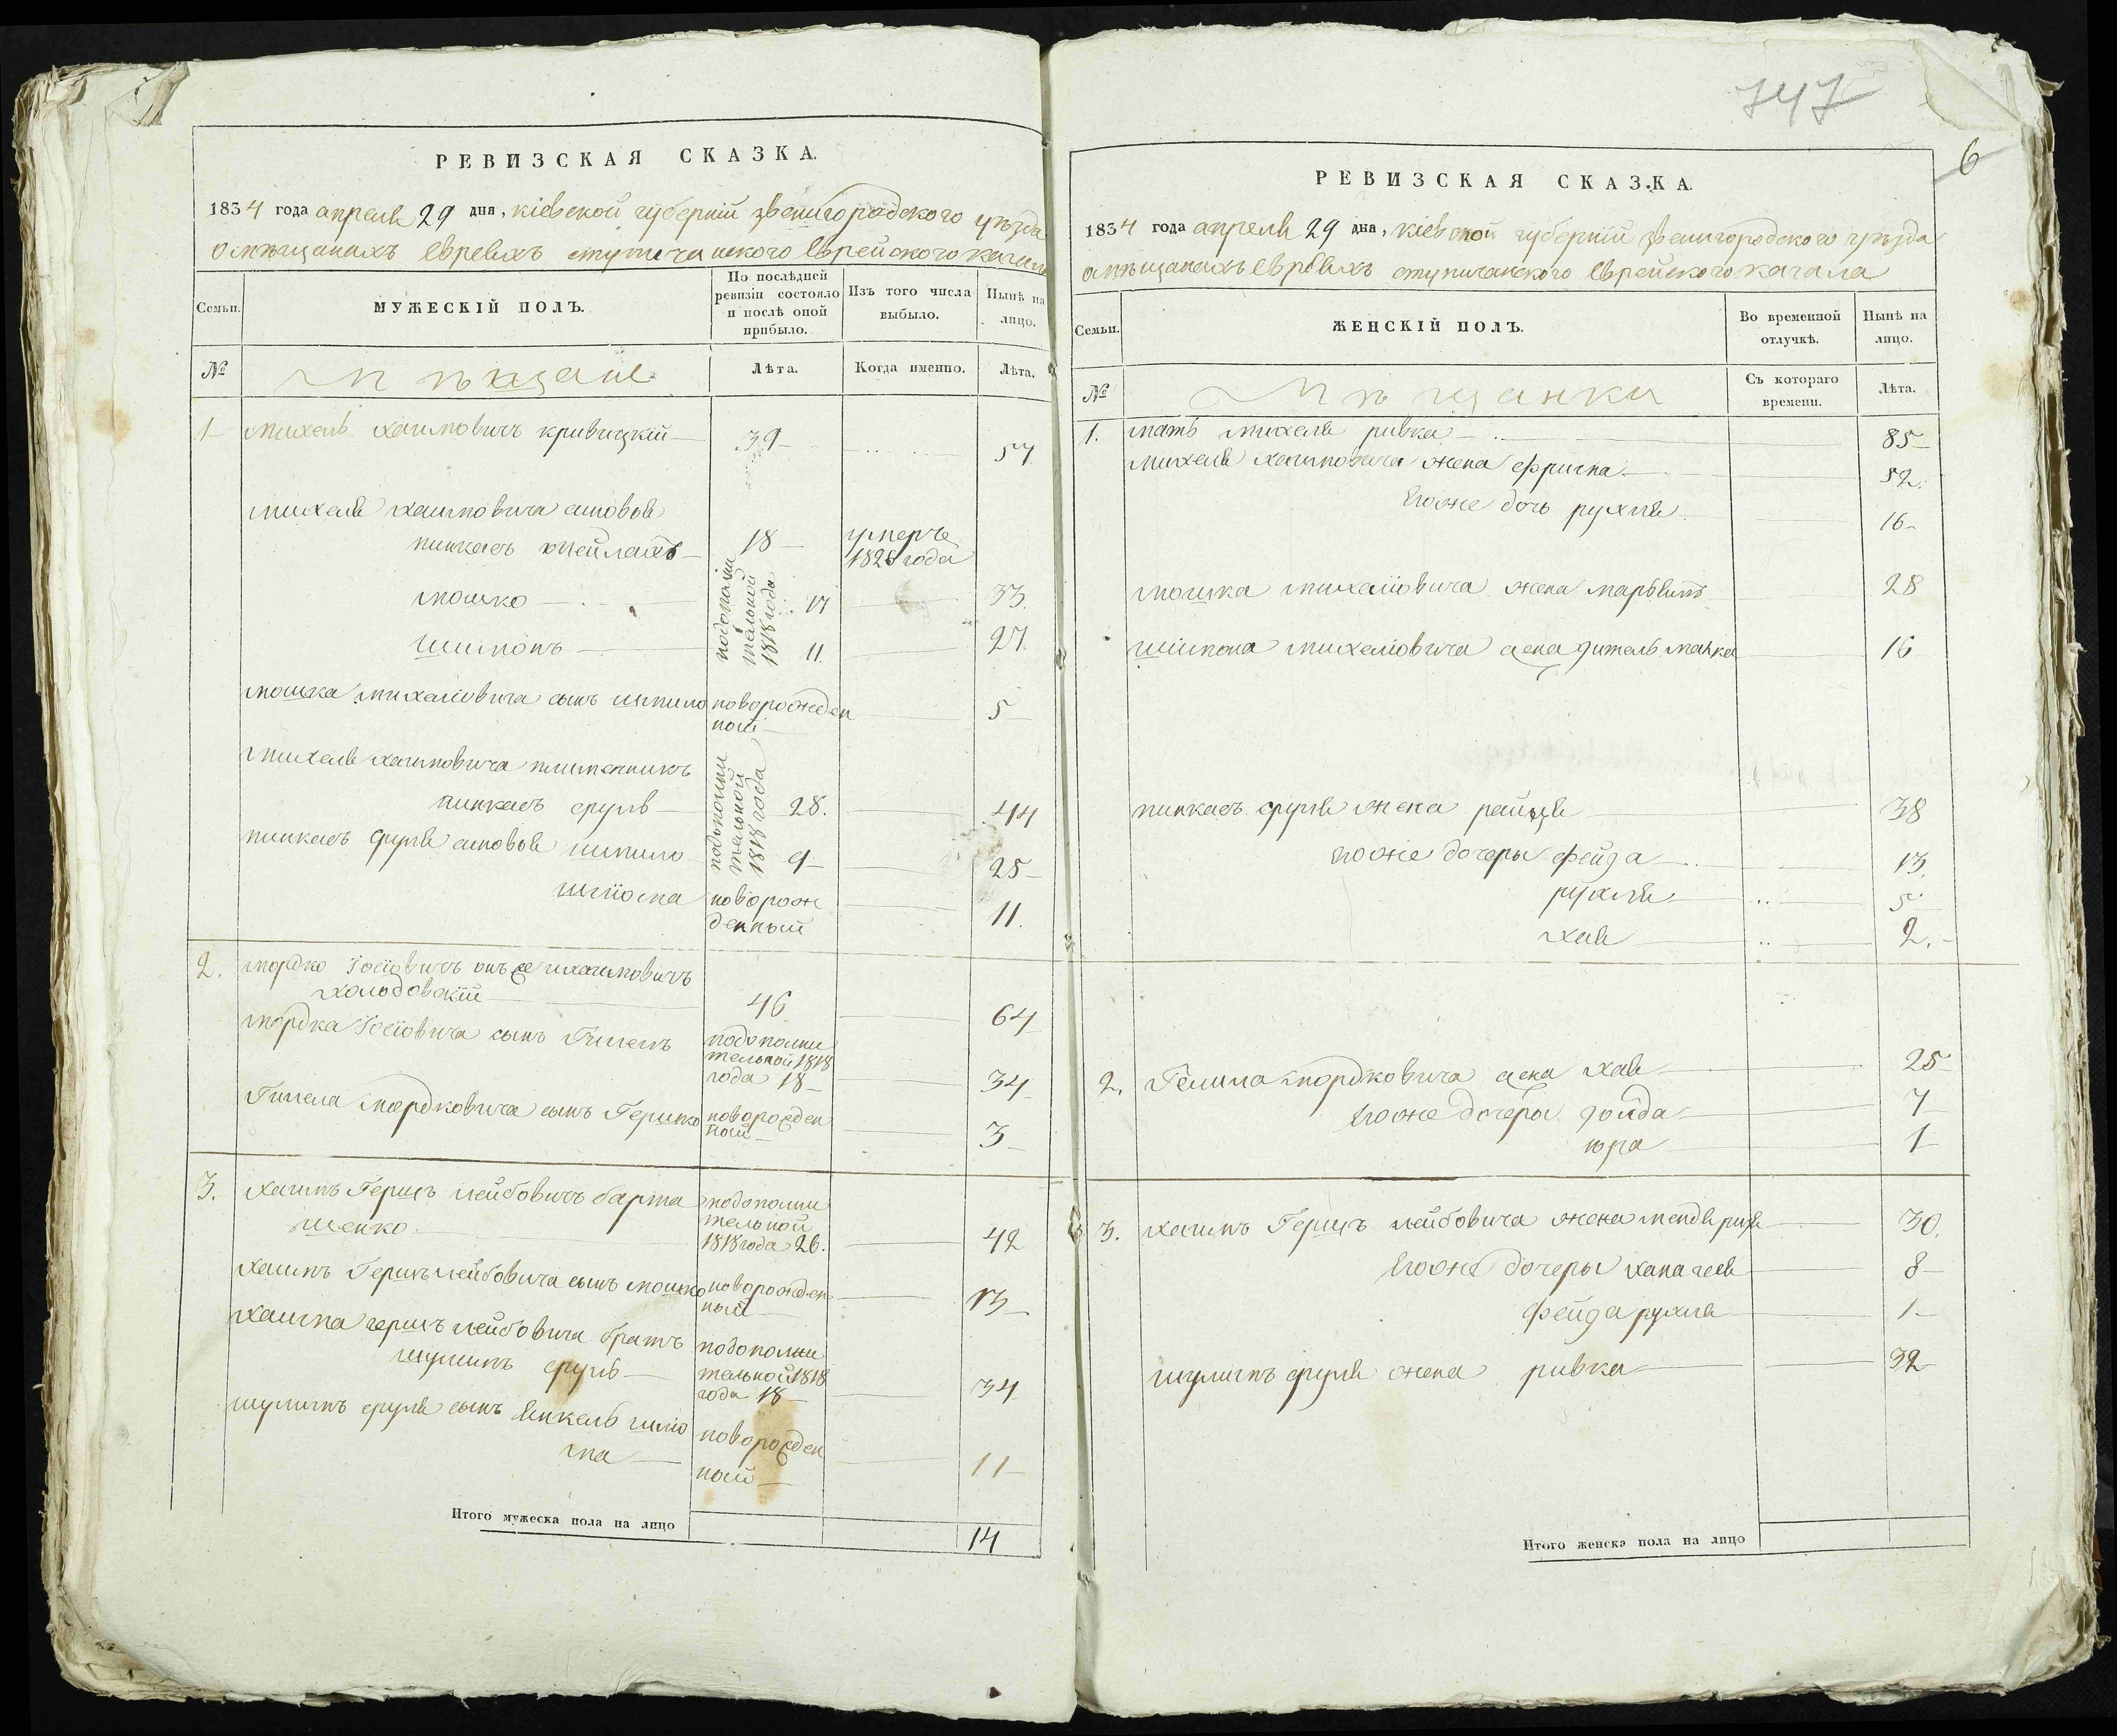 747
6
РЕВИЗСКАЯ СКАЗКА.
1834 года апреля 29 дня, кіевской губерніи звенигородского уѣзда
о мѣщанахъ евреяхъ ступичанского еврейского кагала
Семьи.
МУЖЕСКІЙ ПОЛЪ.
По послѣдней ревизіи состояло и послѣ оной прибыло.
Изъ того числа выбыло.
Нынѣ на лицо.
№
Мѣщане
Лѣта.
Когда именно.
Лѣта.
1 Михель Хаимовичъ кривицкій 39 57
Михеля Хаимовича сыновья
пинкасъ 18 умеръ 1825 года
мошко подополнительной 1818 года 17 33
Шимонъ 11 27
мошка михелiовича сынъ новорожденной 5
Михеля хаимовича племенникъ
пинкасъ сруль подополнительной 1818 года 28. 44
пинкасъ сруля сыновья 9 25
Шліома новорожденный 11
2. мордко Іосіовичъ онъже и хаимовичъ
холодовскій 46 64
мордка Іосіовича сынъ подополнительной 1818 года 18 34
мордковича сынъ Гершко новорожденной 3
3. хаимъ Гершъ лейбовичъ барта
шенко подополнительной 1818 года 26. 42
хаимъ Гершъ лейбовича сынъ мошко новорожденной 13
хаима гершъ лейбовича братъ
шулимъ сруль подополнительной 1818 года 18 34
шулимъ сруля сынъ Янкель шліо
ма новорожденной 11
Итого мужеска пола на лицо 14
РЕВИЗСКАЯ СКАЗКА.
1834 года апреля 29 дня, кіевской губерніи звенигородского уѣзда
о мѣщанахъ евреяхъ ступичанского еврейского кагала
Семьи.
ЖЕНСКІЙ ПОЛЪ.
Во временной отлучкѣ.
Нынѣ на лицо.
№
Мѣщанки
Съ котораго времени.
Лѣта.
1. мать михеля ривка 85
михеля хаимовича жена фрима 52
Егоже дочь рухля 16
мошка михелiовича жена 28
шимона михелiовича жена 16
пинкасъ сруля жена райзя 38
Егоже дочеры фейга 13
рухля 5
хая 2.
2. мордковича жена хая 25
Егоже дочеры 7
юра 1
3. хаимъ Гершъ лейбовича жена 30.
Егоже дочеры 8
фейга рухля 1
шулимъ сруля жена ривка 32
Итого женска пола на лицо